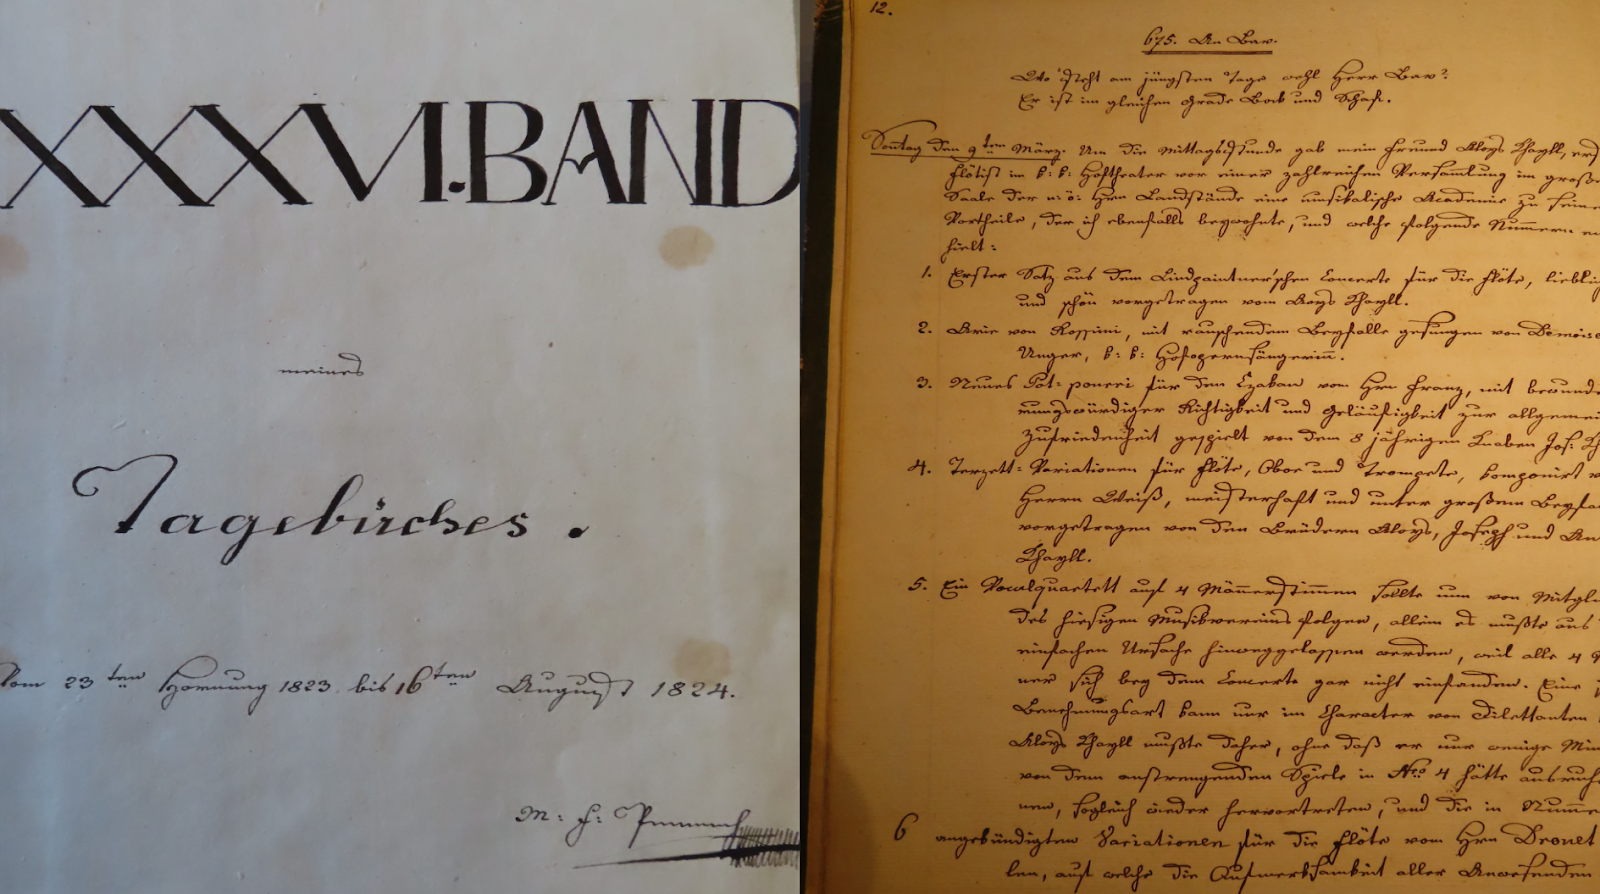 XXXVI. BAND
meines
Tagebuches.
Vom 23ten Hornung 1823 bis 16ten August 1824.
M: J:
12.
675. An Bav.
Wo steht am jüngsten Tage wohl Herr Bav?
Er ist im gleichen Grade Bock und Schaf.
Sonntag den 9ten März. Um die Mittagsstunde gab mein Freund Aloys Khayll, er
Flötist im k: k: Hoftheater vor einer zahlreichen Versam̄lung im große
Saale der n: ö: Hrn Landstände eine musikalische Academie zu seine
Vortheile, der ich ebenfalls beywohnte, und welche folgende Num̄ern en
hielt:
1. Erster Satz aus dem Lindpaintner'schen Concerte für die Flöte, lieblic
und schön vorgetragen vom Aloys Khayll.
2. Arie von Rossini, mit rauschendem Beyfalle gesungen von Demoise
Unger, k: k: Hofopernsängerin̄.
3. Neues Pot-pourri für den Czakan vom Hrn Franz, mit bewunde
rungswürdiger Richtigkeit und Geläufigkeit zur allgemei
Zufriedenheit gespielt von dem 8 jährigen Knaben Jos: Kh
4. Terzett-Variationen für Flöte, Oboe und Trompete, komponirt v
Herrn Weiß, meisterhaft und unter großem Beyfa
vorgetragen von den Brüdern Aloys, Joseph und An
Khayll.
5. Ein Vocalquartett auf 4 Män̄erstim̄en sollte nun von Mitgli
des hiesigen Musikvereins folgen, allein es mußte aus
einfachen Ursache hinweggelassen werden, weil alle 4
ner sich bey dem Concerte gar nicht einfanden. Eine
Benehmungsart kann nur im Character von Dilettanten
Aloys Khayll mußte daher, ohne daß er nur wenige Min
von dem anstrengenden Spiele in Nro 4 hätte ausruh
nen, sogleich wieder hervortreten, und die in Num̄e
6 angekündigten Variationen für die Flöte vom Hrn Drouet
len, auf welche die Aufmerksamkeit aller Anwesenden